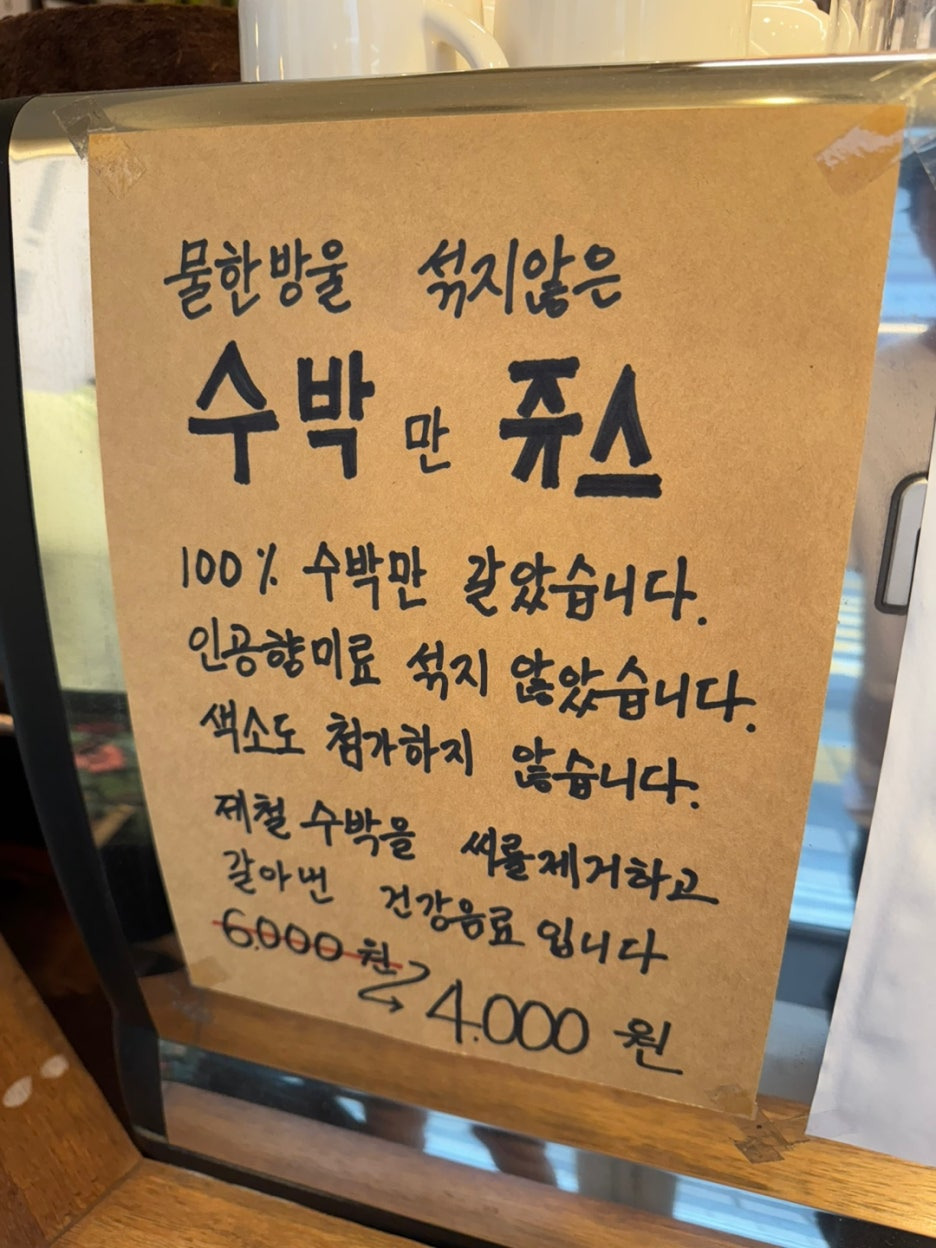 물한방울 섞지않은
수박만 쥬스
100% 수박만 갈았습니다.
인공향미료 섞지 않았습니다.
색소도 첨가하지 않습니다.
제철 수박을 씨를제거하고
갈아낸 건강음료 입니다
6.000 원
4.000 원